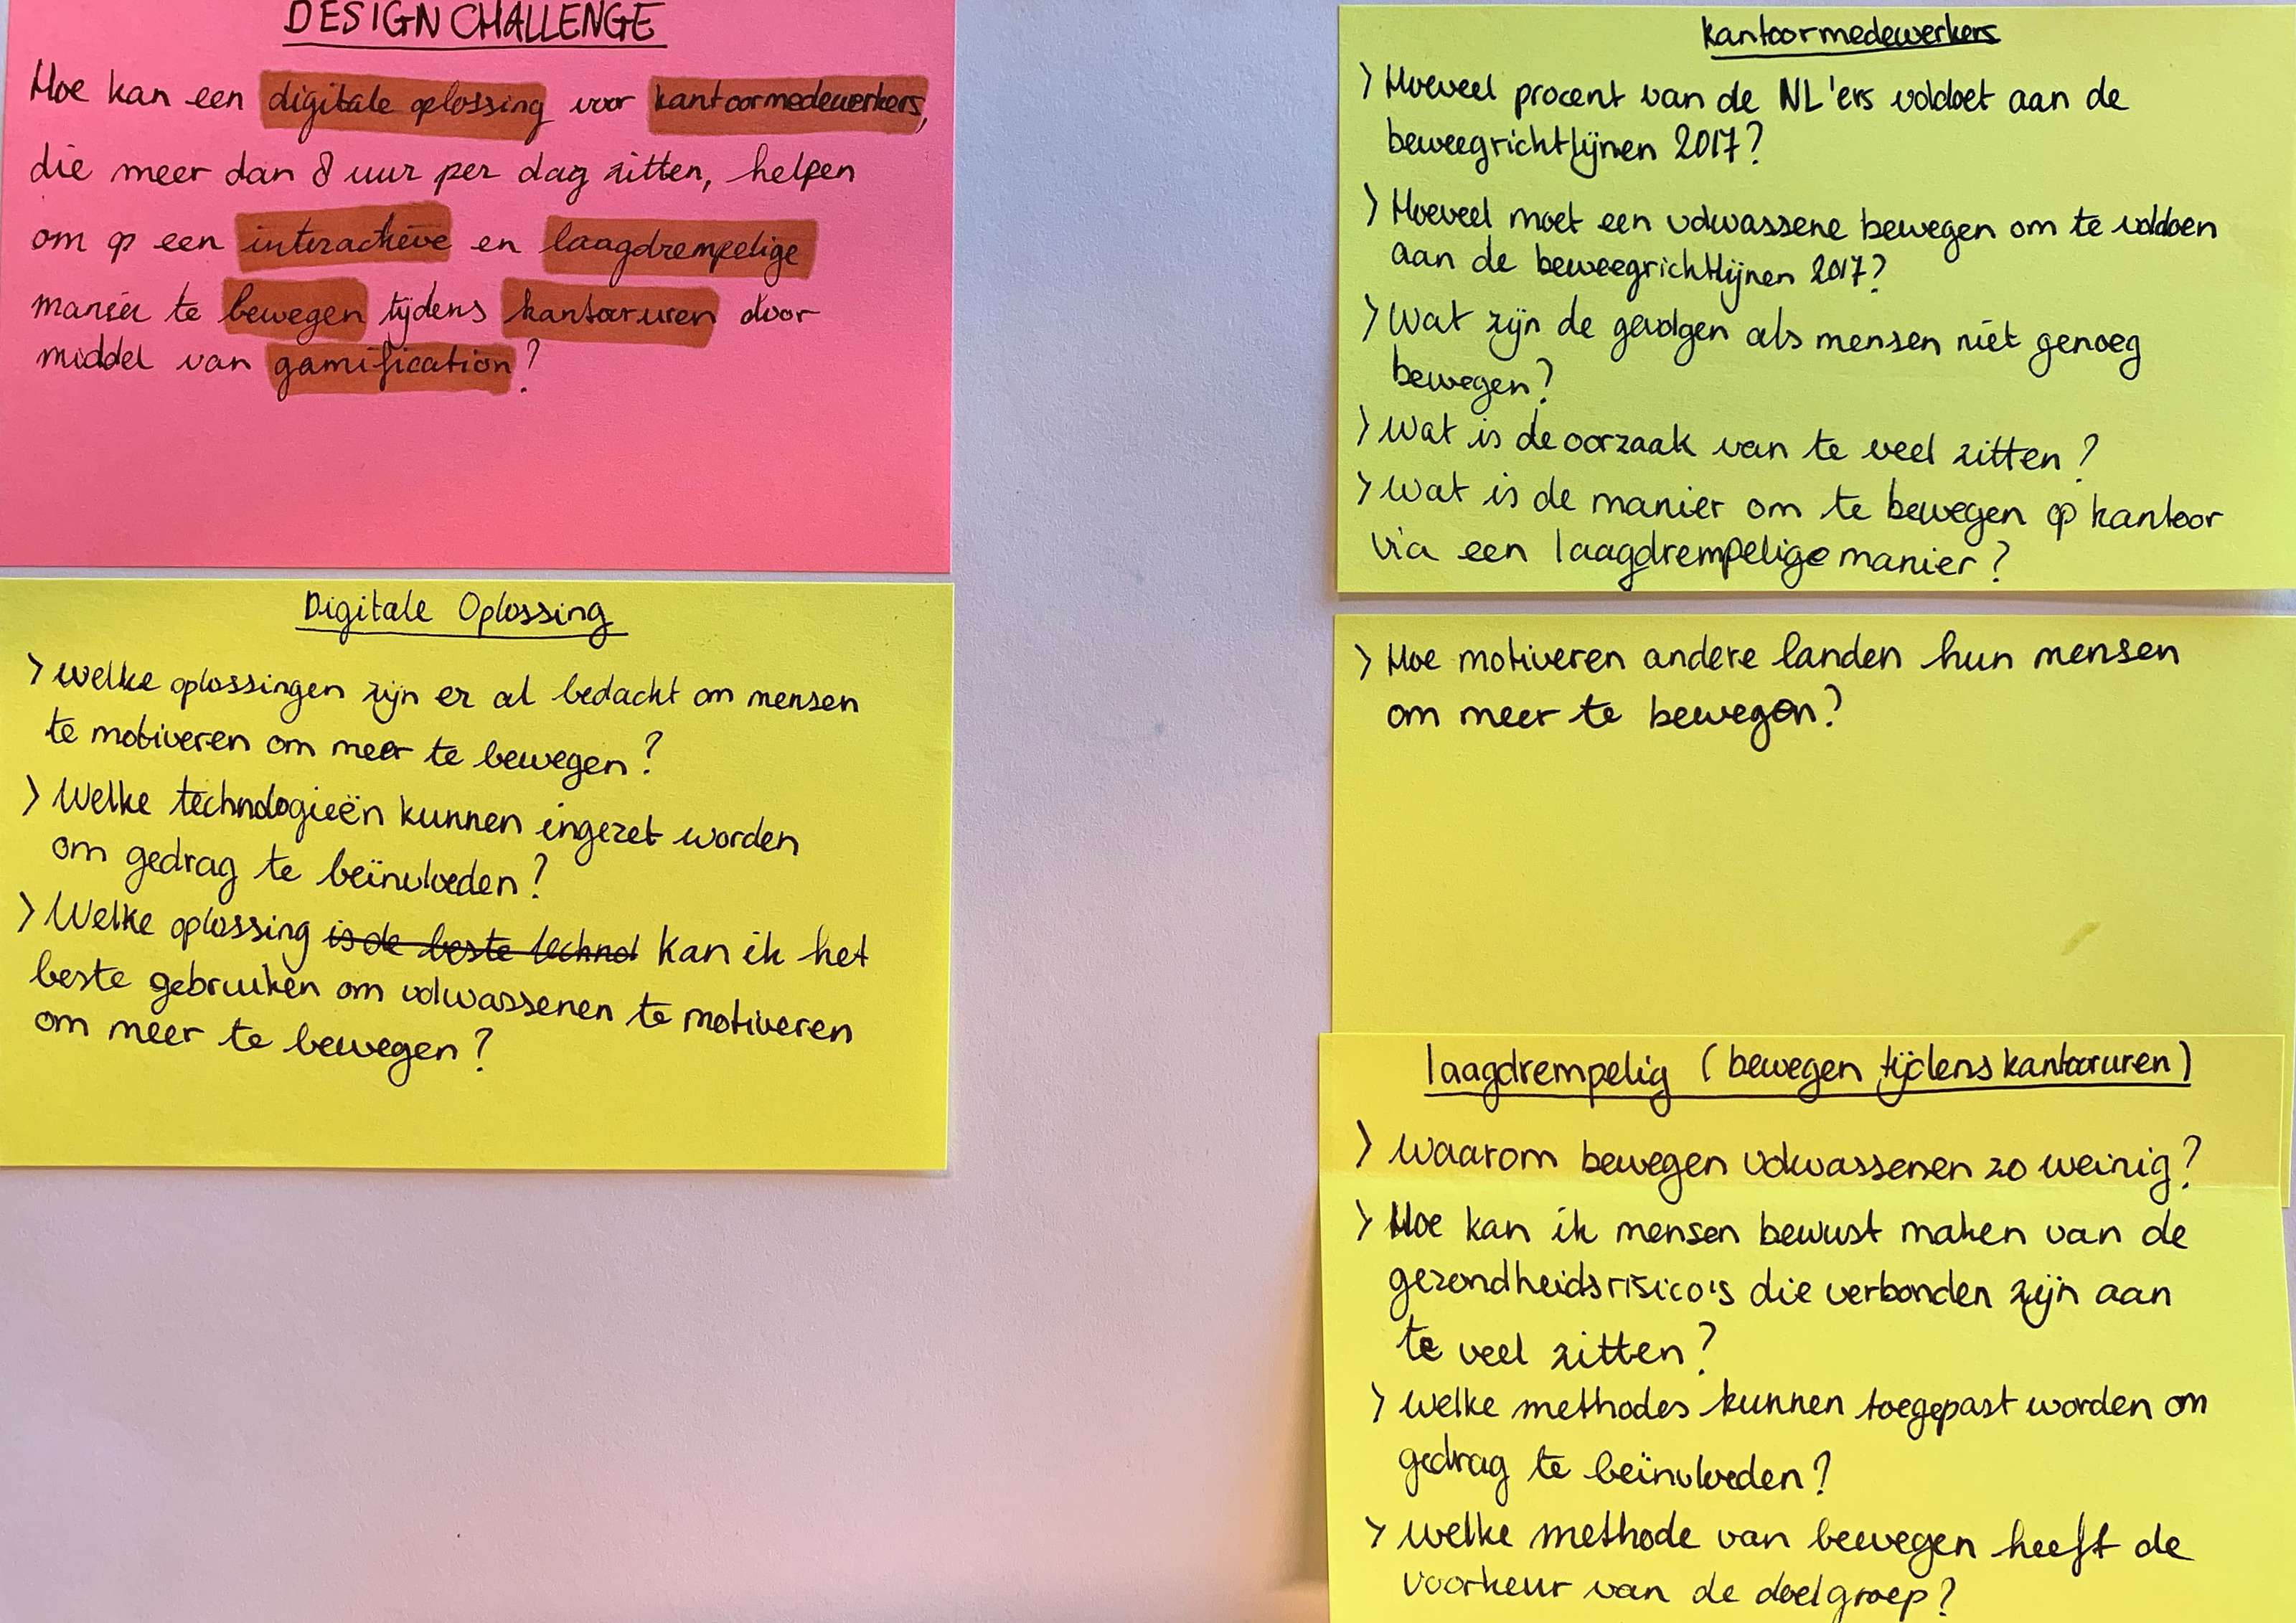 DESIGN CHALLENGE
Hoe kan een digitale oplossing voor kantoormedewerkers,
die meer dan 8 uur per dag zitten, helpen
om op een interactieve en laagdrempelige
manier te bewegen tijdens kantooruren door
middel van gamification?
Digitale Oplossing
> Welke oplossingen zijn er al bedacht om mensen
te motiveren om meer te bewegen?
> Welke technologieën kunnen ingezet worden
om gedrag te beïnvloeden?
> Welke oplossing is de beste technol kan ik het
beste gebruiken om volwassenen te motiveren
om meer te bewegen?
kantoormedewerkers
> Hoeveel procent van de NL'ers voldoet aan de
beweegrichtlijnen 2017?
> Hoeveel moet een volwassene bewegen om te voldoen
aan de beweegrichtlijnen 2017?
> Wat zijn de gevolgen als mensen niet genoeg
bewegen?
> Wat is de oorzaak van te veel zitten?
> Wat is de manier om te bewegen op kantoor
via een laagdrempelige manier?
> Hoe motiveren andere landen hun mensen
om meer te bewegen?
laagdrempelig (bewegen tijdens kantooruren)
> Waarom bewegen volwassenen zo weinig?
> Hoe kan ik mensen bewust maken van de
gezondheidsrisico's die verbonden zijn aan
te veel zitten?
> Welke methodes kunnen toegepast worden om
gedrag te beïnvloeden?
> Welke methode van bewegen heeft de
voorkeur van de doelgroep?